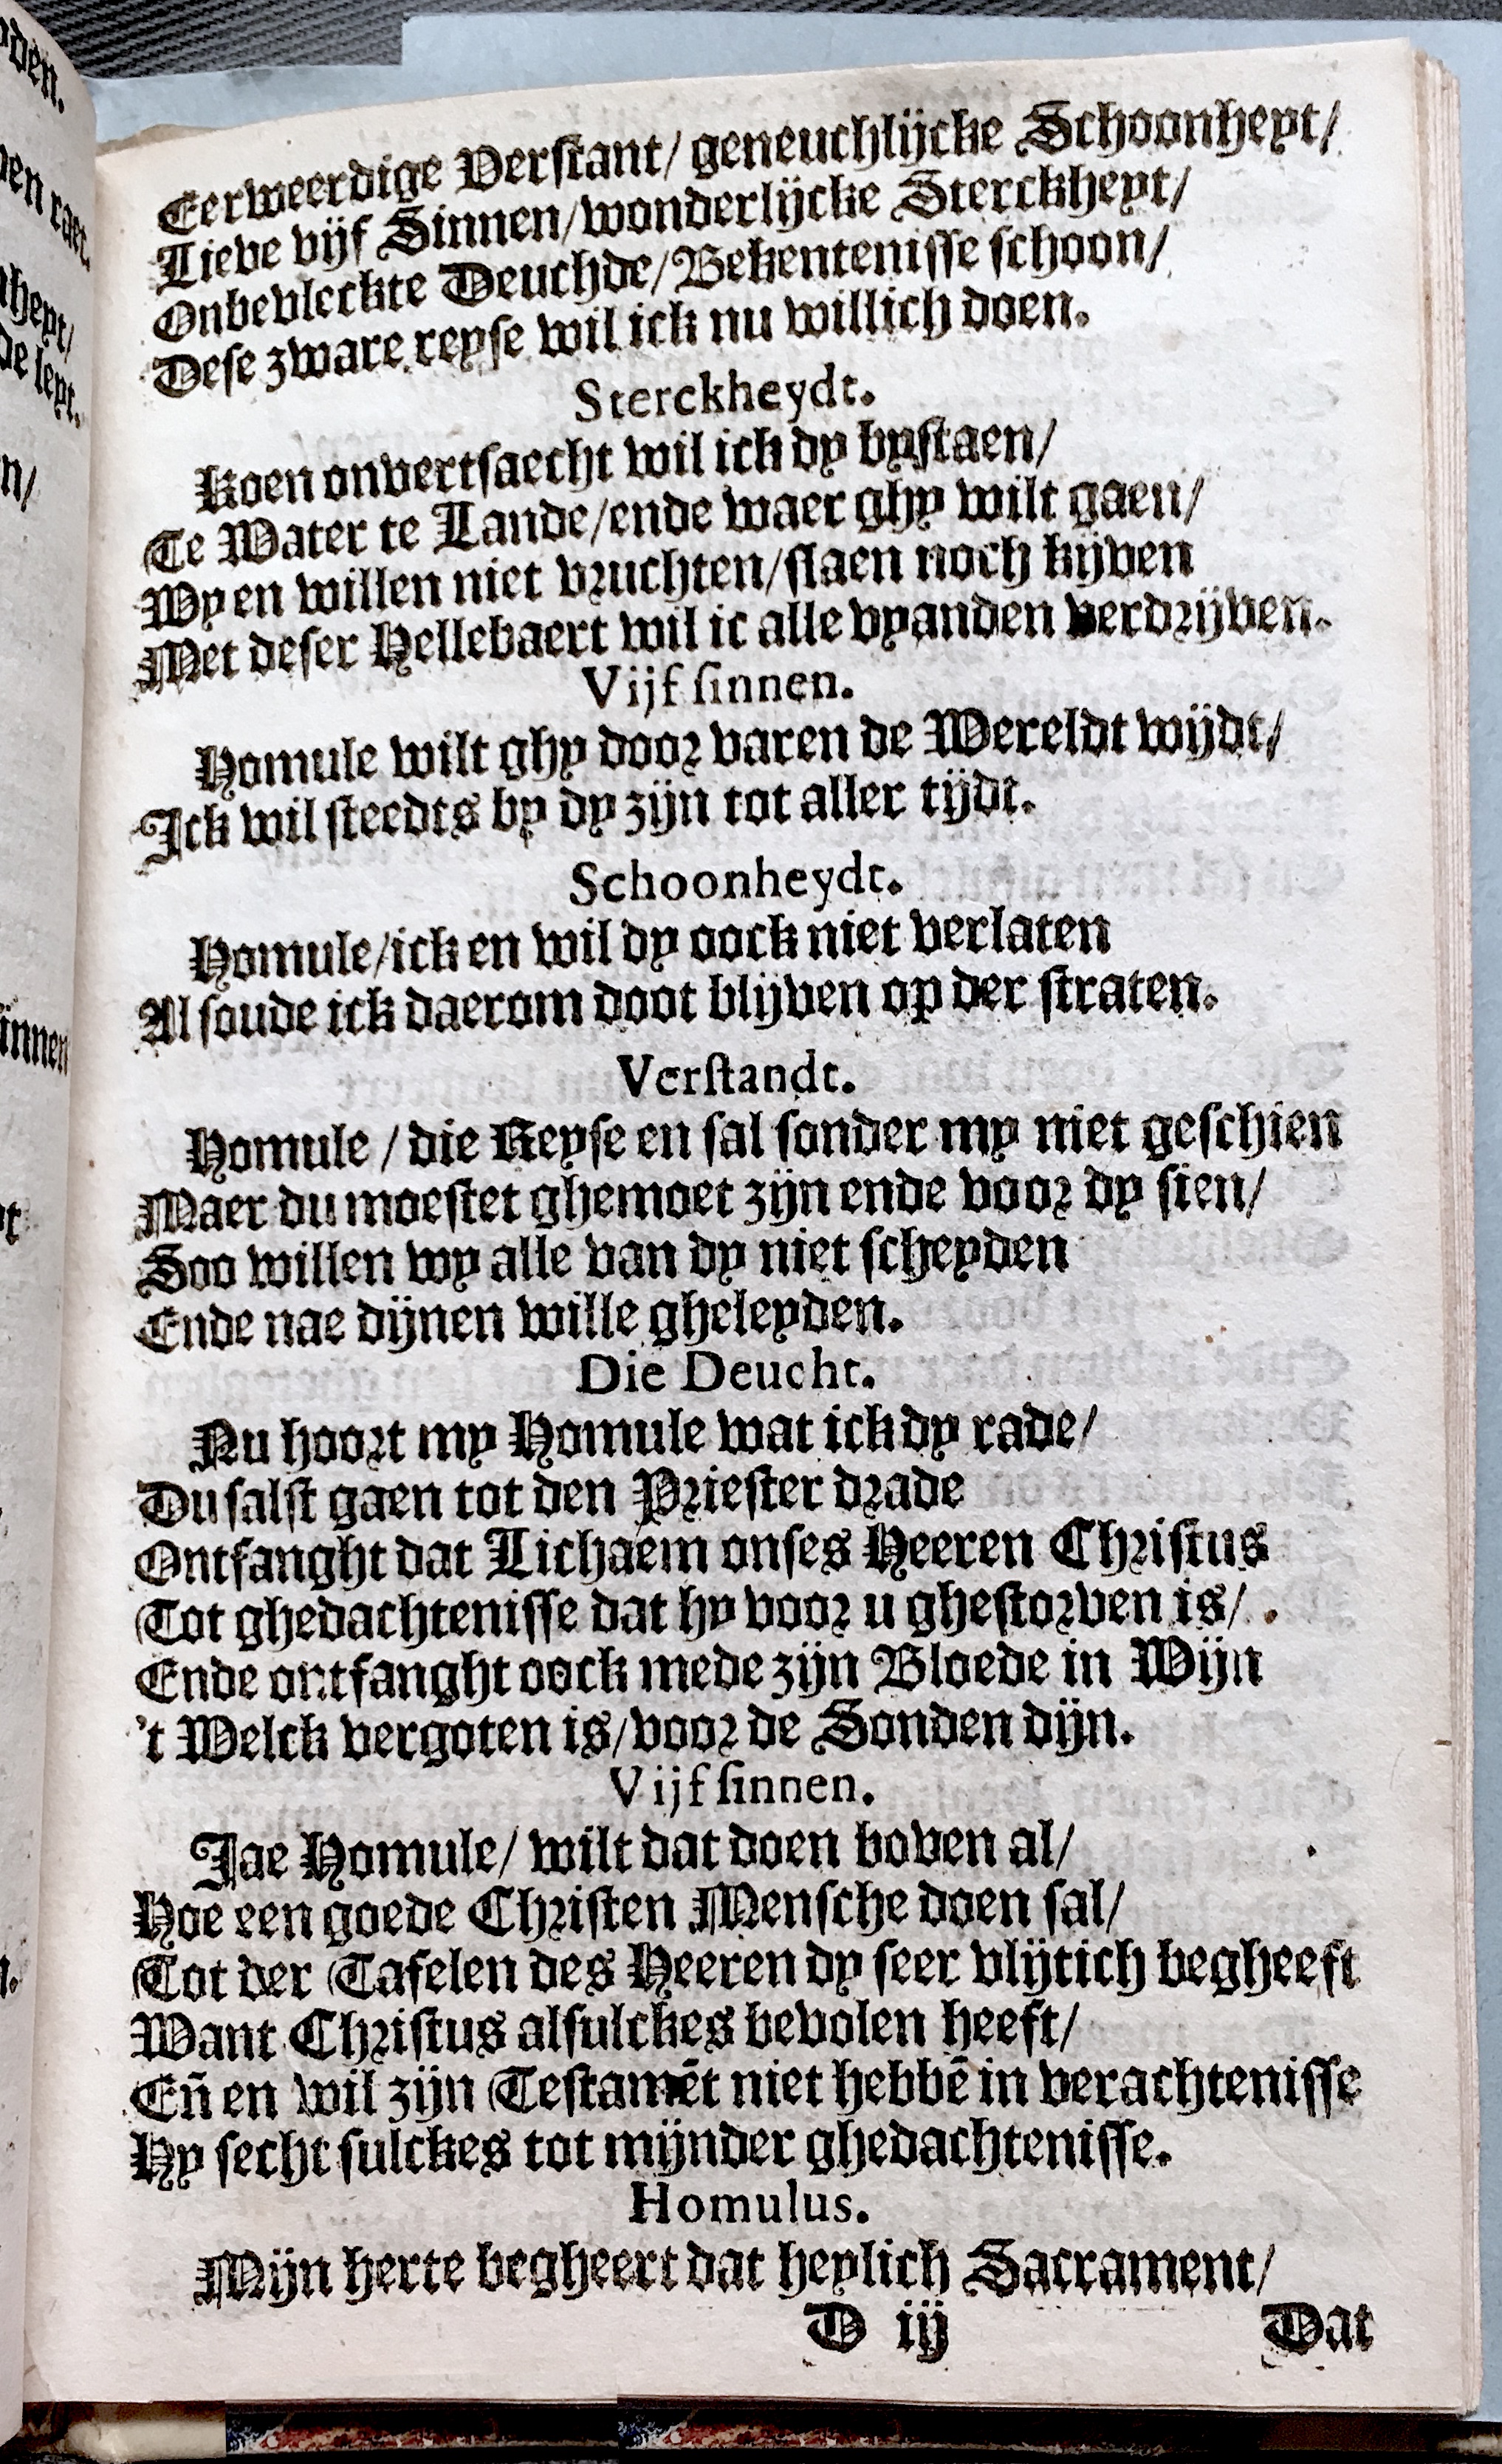 Eerweerdige Verstant/ geneuchlijcke Schoonheyt/
Lieve vijf Sinnen/wonderlijcke Sterckheyt/
Onbevleckte Deuchde/Bekentenisse schoon/
Dese zware reyse wil ick nu willich doen.
Sterckheydt.
Koen onvertsaecht wil ick dy bystaen/
Te Water te Lande/ende waer ghy wilt gaen/
Wy en willen niet vruchten/slaen noch kijven
Met deser Hellebaert wil ic alle vyanden verdrijven.
Vijf sinnen.
Homule wilt ghy door varen de Wereldt wijdt/
Ick wil steedts by dy zijn tot aller tijdt.
Schoonheydt.
Homule/ick en wil dy oock niet verlaten
Al soude ick daerom doot blijven op der straten.
Verstandt.
Homule / die Reyse en sal sonder my niet geschien
Maer du moestet ghemoet zijn ende voor dy sien/
Soo willen wy alle van dy niet scheyden
Ende nae dijnen wille gheleyden.
Die Deucht.
Nu hoort my Homule wat ick dy rade/
Du salst gaen tot den Priester drade
Ontfanght dat Lichaem onses Heeren Christus
Tot ghedachtenisse dat hy voor u ghestorven is/
Ende ontfanght oock mede zijn Bloede in Wijn
't Welck vergoten is/voor de Sonden dijn.
Vijf sinnen.
Jae Homule/ wilt dat doen boven al/
Hoe een goede Christen Mensche doen sal/
Tot der Tafelen des Heeren dy seer vlijtich begheeft
Want Christus alsulckes bevolen heeft/
Eñ en wil zijn Testamēt niet hebbē in verachtenisse
Hy secht sulckes tot mijnder ghedachtenisse.
Homulus.
Mijn herte begheert dat heylich Sacrament/
D iij
Dat